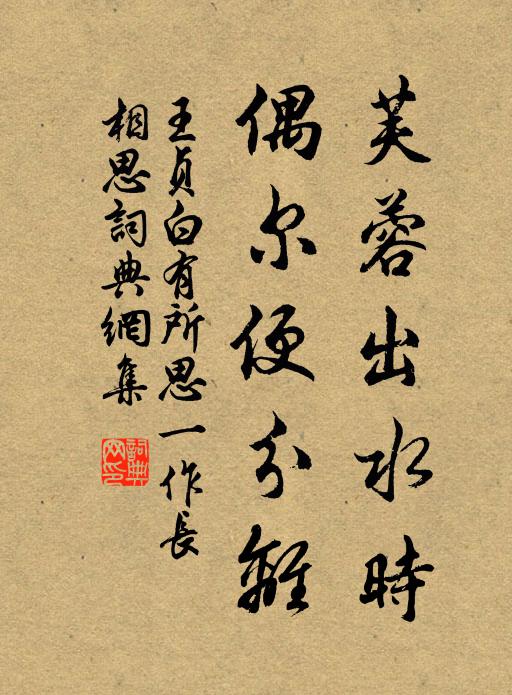 芙蓉出水時
偶尔便分離
王貞白有所思一作長
相思詞典網集
詞典网印